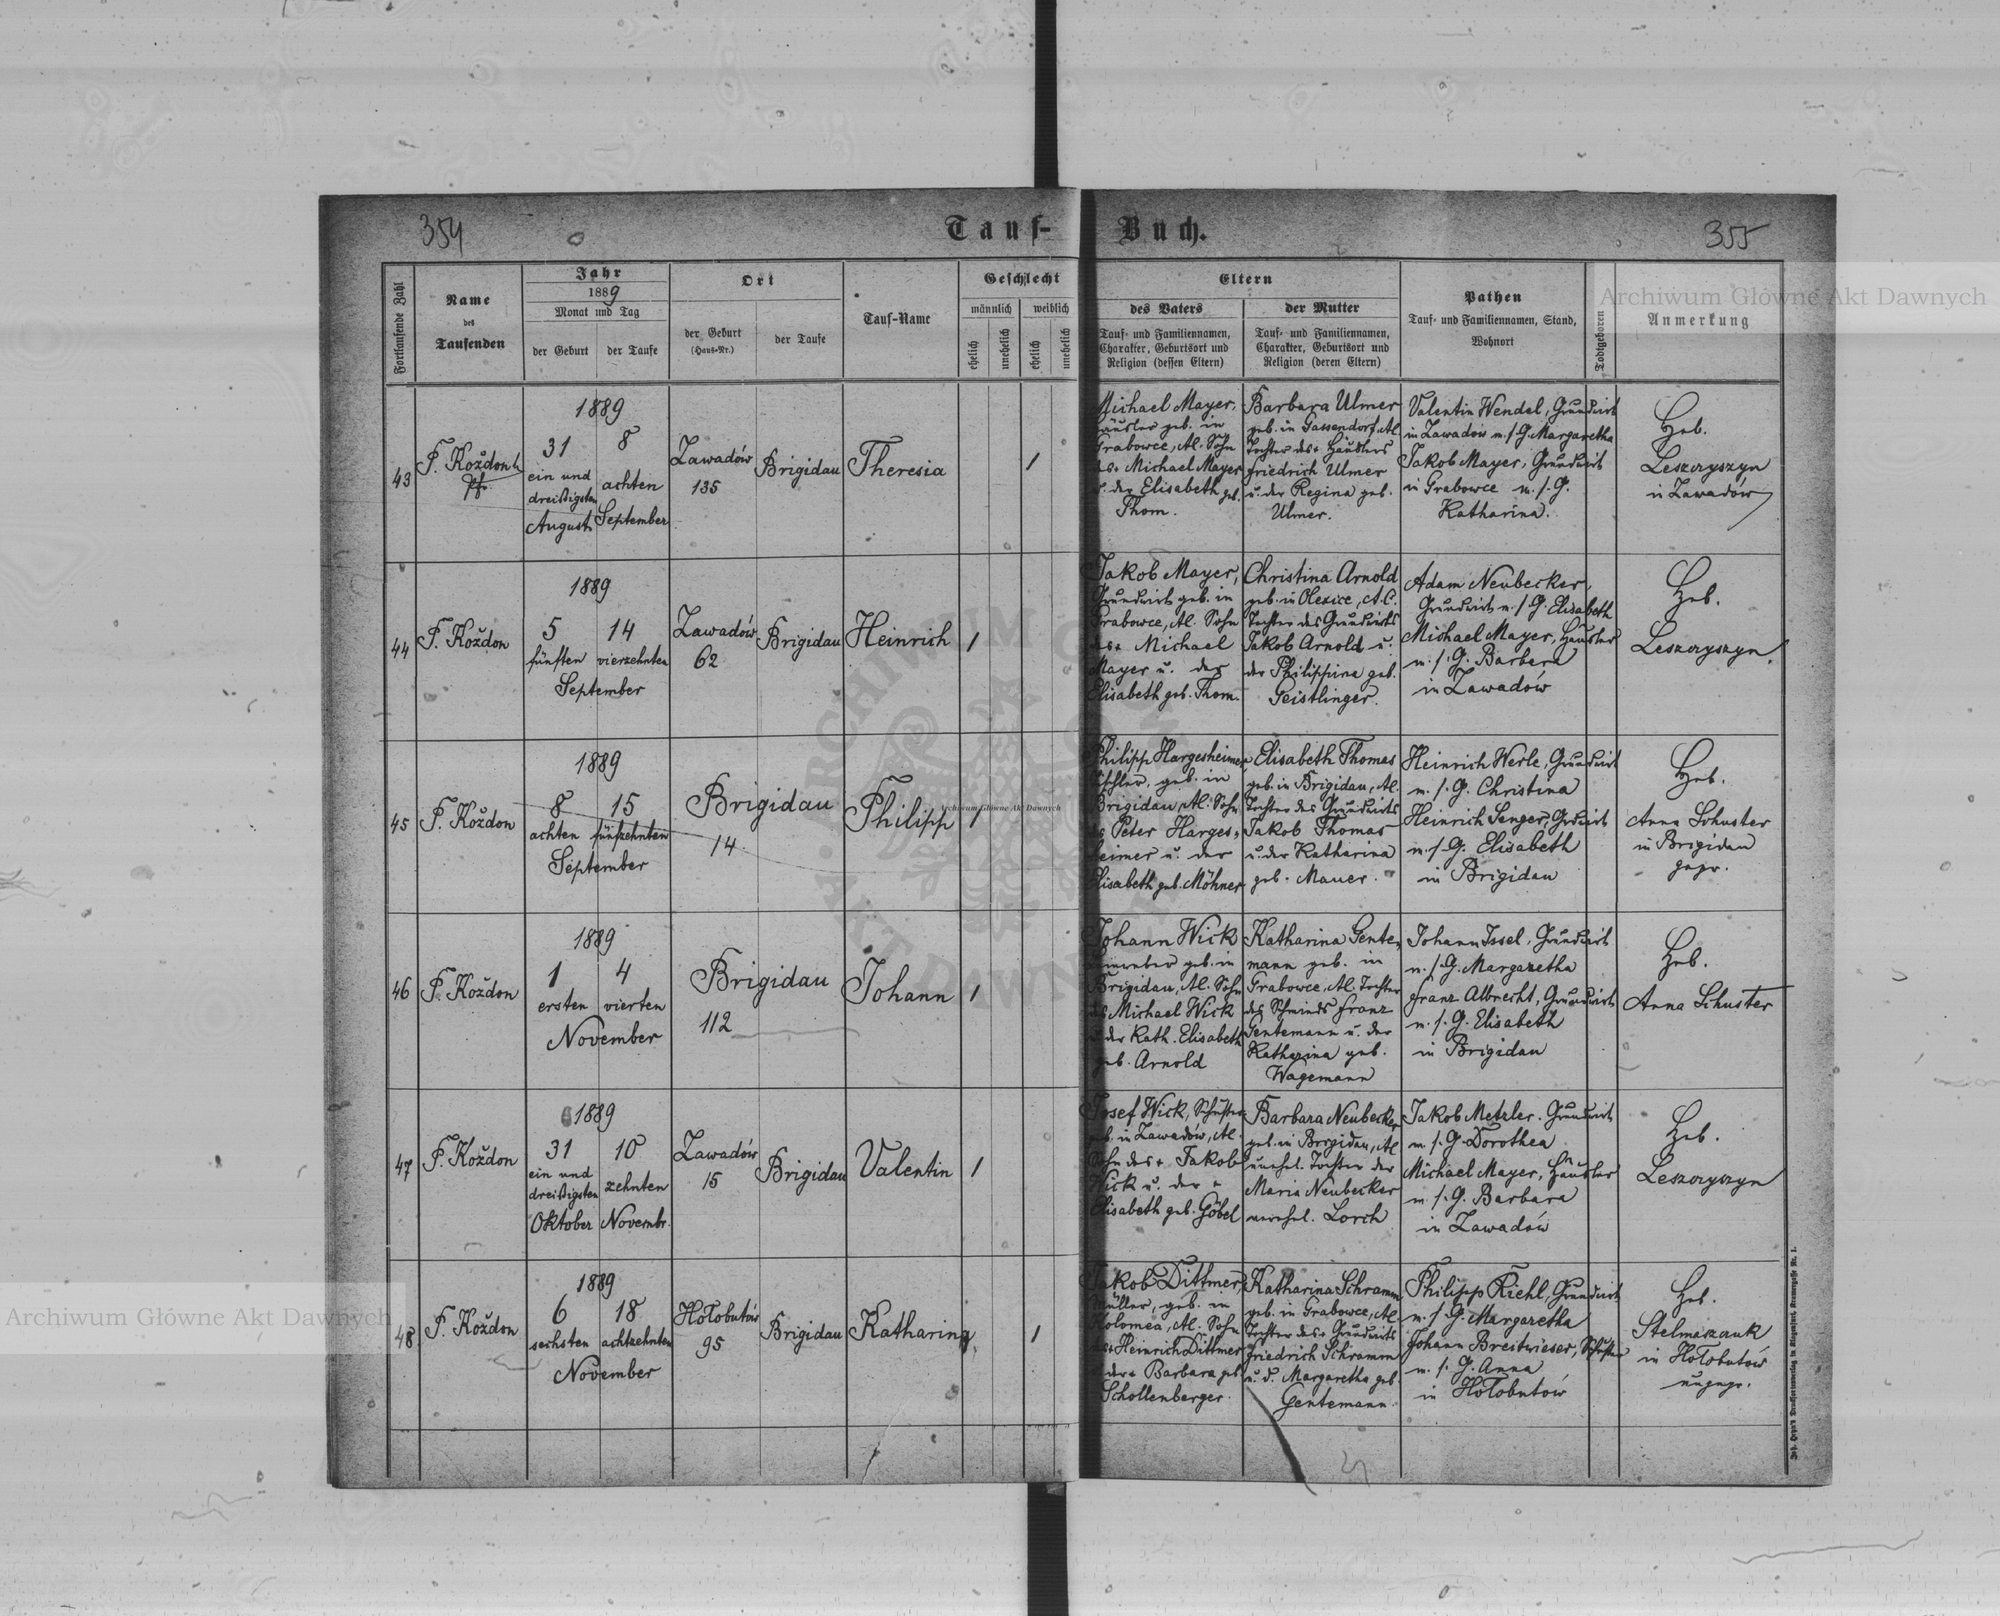 354
Tauf-
Buch.
355
Fortlaufende Zahl
Name
des
Taufenden
Jahr
1889
Monat und Tag
der Geburt
der Taufe
Ort
der Geburt
(Haus-Nr.)
der Taufe
Tauf-Name
Geschlecht
männlich
weiblich
ehelich
unehelich
ehelich
unehelich
Eltern
des Vaters
Tauf- und Familiennamen,
Charakter, Geburtsort und
Religion (dessen Eltern)
der Mutter
Tauf- und Familiennamen,
Charakter, Geburtsort und
Religion (deren Eltern)
Pathen
Tauf- und Familiennamen, Stand,
Wohnort
Todtgeboren
Anmerkung
43
F. Koždon
Pf.
1889
31
ein und
dreißigsten
August
8
achten
September
Zawadów
135
Brigidau
Theresia
1
Michael Mayer,
Häusler geb. in
Grabowce, Al. Sohn
des Michael Mayer
u. der Elisabeth geb.
Thom.
Barbara Ulmer
geb. in Gassendorf, Al.
Tochter des Häuslers
Friedrich Ulmer
u. der Regina geb.
Ulmer.
Valentin Wendel, Grundwirt
in Zawadów m./G. Margaretha
Jakob Mayer, Grundwirt
in Grabowce m./G.
Katharina.
Heb.
Leszczyszyn
in Zawadów
44
F. Koždon
1889
5
fünften
14
vierzehnten
September
Zawadów
62
Brigidau
Heinrich
1
Jakob Mayer,
Grundwirt geb. in
Grabowce, Al. Sohn
des Michael
Mayer u. der
Elisabeth geb. Thom.
Christina Arnold
geb. in Olexice, A.C.
Tochter des Grundwirts
Jakob Arnold u.
der Philippina geb.
Geistlinger.
Adam Neubecker,
Grundwirt m./G. Elisabeth
Michael Mayer, Häusler
m./G. Barbara
in Zawadów
Heb.
Leszczyszyn.
45
F. Koždon
1889
8
achten
15
fünfzehnten
September
Brigidau
14
Philipp
1
Philipp Hargesheimer
Tischler, geb. in
Brigidau, Al. Sohn
des Peter Harges-
heimer u. der
Elisabeth geb. Möhner
Elisabeth Thomas
geb. in Brigidau, Al.
Tochter des Grundwirts
Jakob Thomas
u. der Katharina
geb. Mauer.
Heinrich Werle, Grundwirt
m./G. Christina
Heinrich Senger, Grdwirt
m./G. Elisabeth
in Brigidau
Heb.
Anna Schuster
in Brigidau
gepr.
46
F. Koždon
1889
1
ersten
4
vierten
November
Brigidau
112
Johann
1
Johann Wick
geb. in
Brigidau, Al. Sohn
des Michael Wick
u. der Kath. Elisabeth
geb. Arnold
Katharina Gente-
mann geb. in
Grabowce, Al. Tochter
des Schmieds Franz
Gentemann u. der
Katharina geb.
Wagemann
Johann Issel, Grundwirt
m./G. Margaretha
Franz Albrecht, Grundwirt
m./G. Elisabeth
in Brigidau
Heb.
Anna Schuster
47
F. Koždon
1889
31
ein und
dreißigsten
Oktober
10
zehnten
Novembr.
Zawadów
15
Brigidau
Valentin
1
Josef Wick, Schuster
geb. in Zawadów, Al.
Sohn des + Jakob
Wick u. der +
Elisabeth geb. Göbel
Barbara Neubecker
geb. in Brigidau, Al.
unehel. Tochter der
Maria Neubecker
verehel. Lorch
Jakob Metzler, Grundwirt
m./G. Dorothea
Michael Mayer, Häusler
m./G. Barbara
in Zawadów
Heb.
Leszczyszyn
48
F. Koždon
1889
6
sechsten
18
achtzehnten
November
Hołobutów
95
Brigidau
Katharina
1
Jakob Dittmer,
Müller, geb. in
Kolomea, Al. Sohn
des + Heinrich Dittmer
der + Barbara geb.
Schollenberger.
Katharina Schramm
geb. in Grabowce, Al.
Tochter des Grundwirts
Friedrich Schramm
u. d. Margaretha geb.
Gentemann.
Philipp Kiehl, Grundwirt
m./G. Margaretha
Johann Breitwieser, Schuster
m./G. Anna
in Hołobutów
Heb.
Stelmaszczuk
in Hołobutów
ungepr.
Archiwum Główne Akt Dawnych
Archiwum Główne Akt Dawnych
Archiwum Główne Akt Dawnych